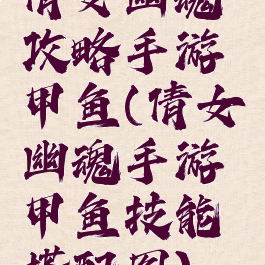 倩女幽魂
攻略手游
甲鱼(倩女
幽魂手游
甲鱼技能
搭配图)